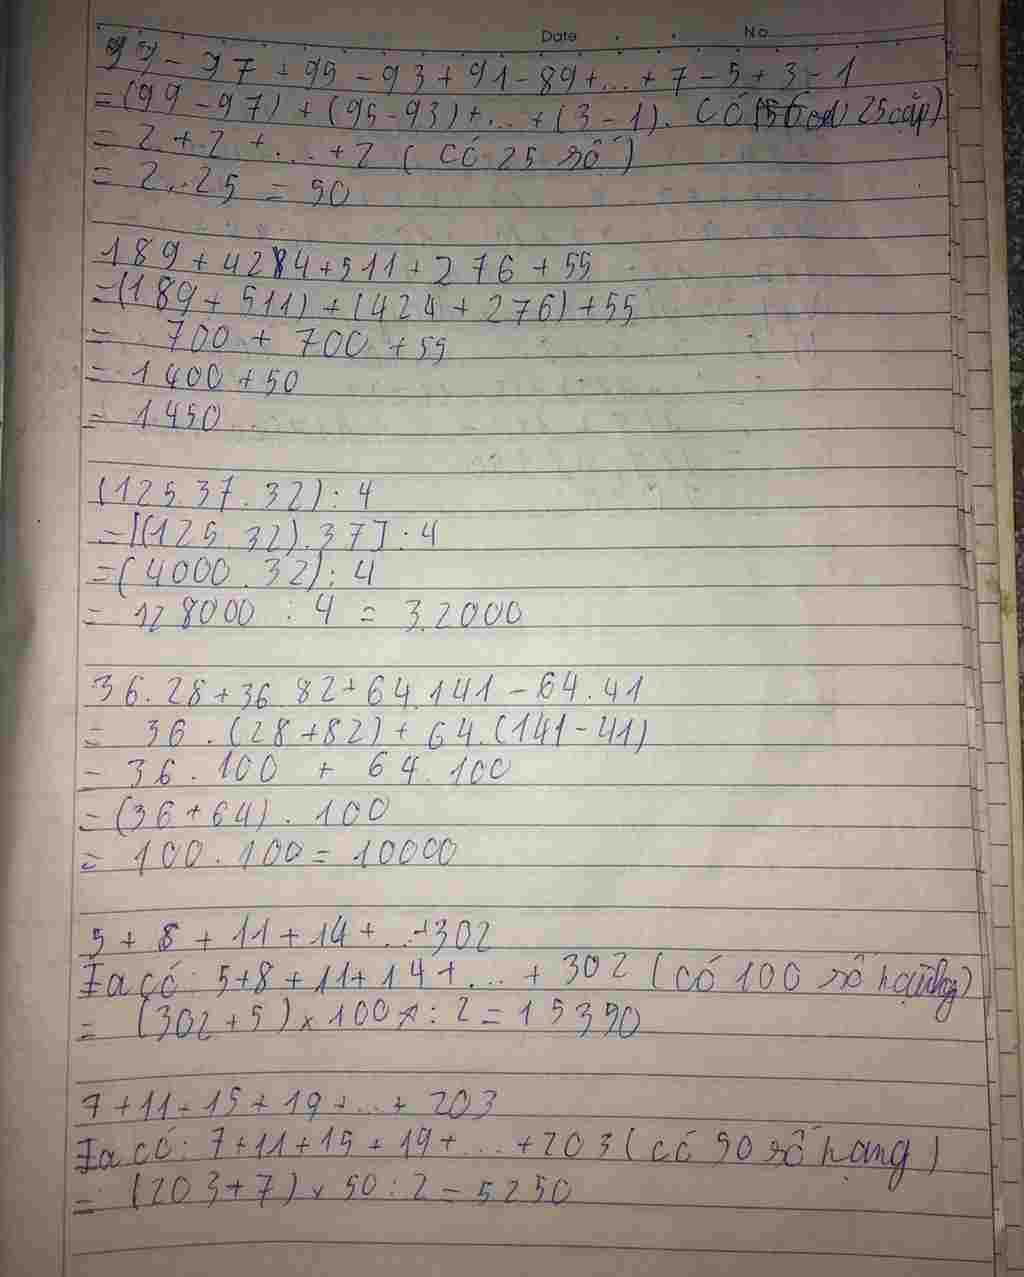 Date No
99 - 97 + 95 - 93 + 91 - 89 + ... + 7 - 5 + 3 - 1
= (99 - 97) + (95 - 93) + ... + (3 - 1). Có 25 cặp)
= 2 + 2 + ... + 2 ( có 25 số )
= 2 . 25 = 50
189 + 424 + 511 + 276 + 55
= (189 + 511) + (424 + 276) + 55
= 700 + 700 + 55
= 1400 + 50
= 1450
(125.37.32) : 4
= [(125.32).37] : 4
= (4000.32) : 4
= 128000 : 4 = 32000
36.28 + 36 82 + 64.141 - 64.41
= 36 . (28 + 82) + 64.(141 - 41)
= 36 . 100 + 64 . 100
= (36 + 64) . 100
= 100 . 100 = 10000
5 + 8 + 11 + 14 + ... + 302
Ta có: 5 + 8 + 11 + 14 + ... + 302 (có 100 số hạng)
= (302 + 5) x 100 : 2 = 15350
7 + 11 + 15 + 19 + ... + 203
Ta có: 7 + 11 + 15 + 19 + ... + 203 ( có 50 số hạng )
= (203 + 7) x 50 : 2 = 5250